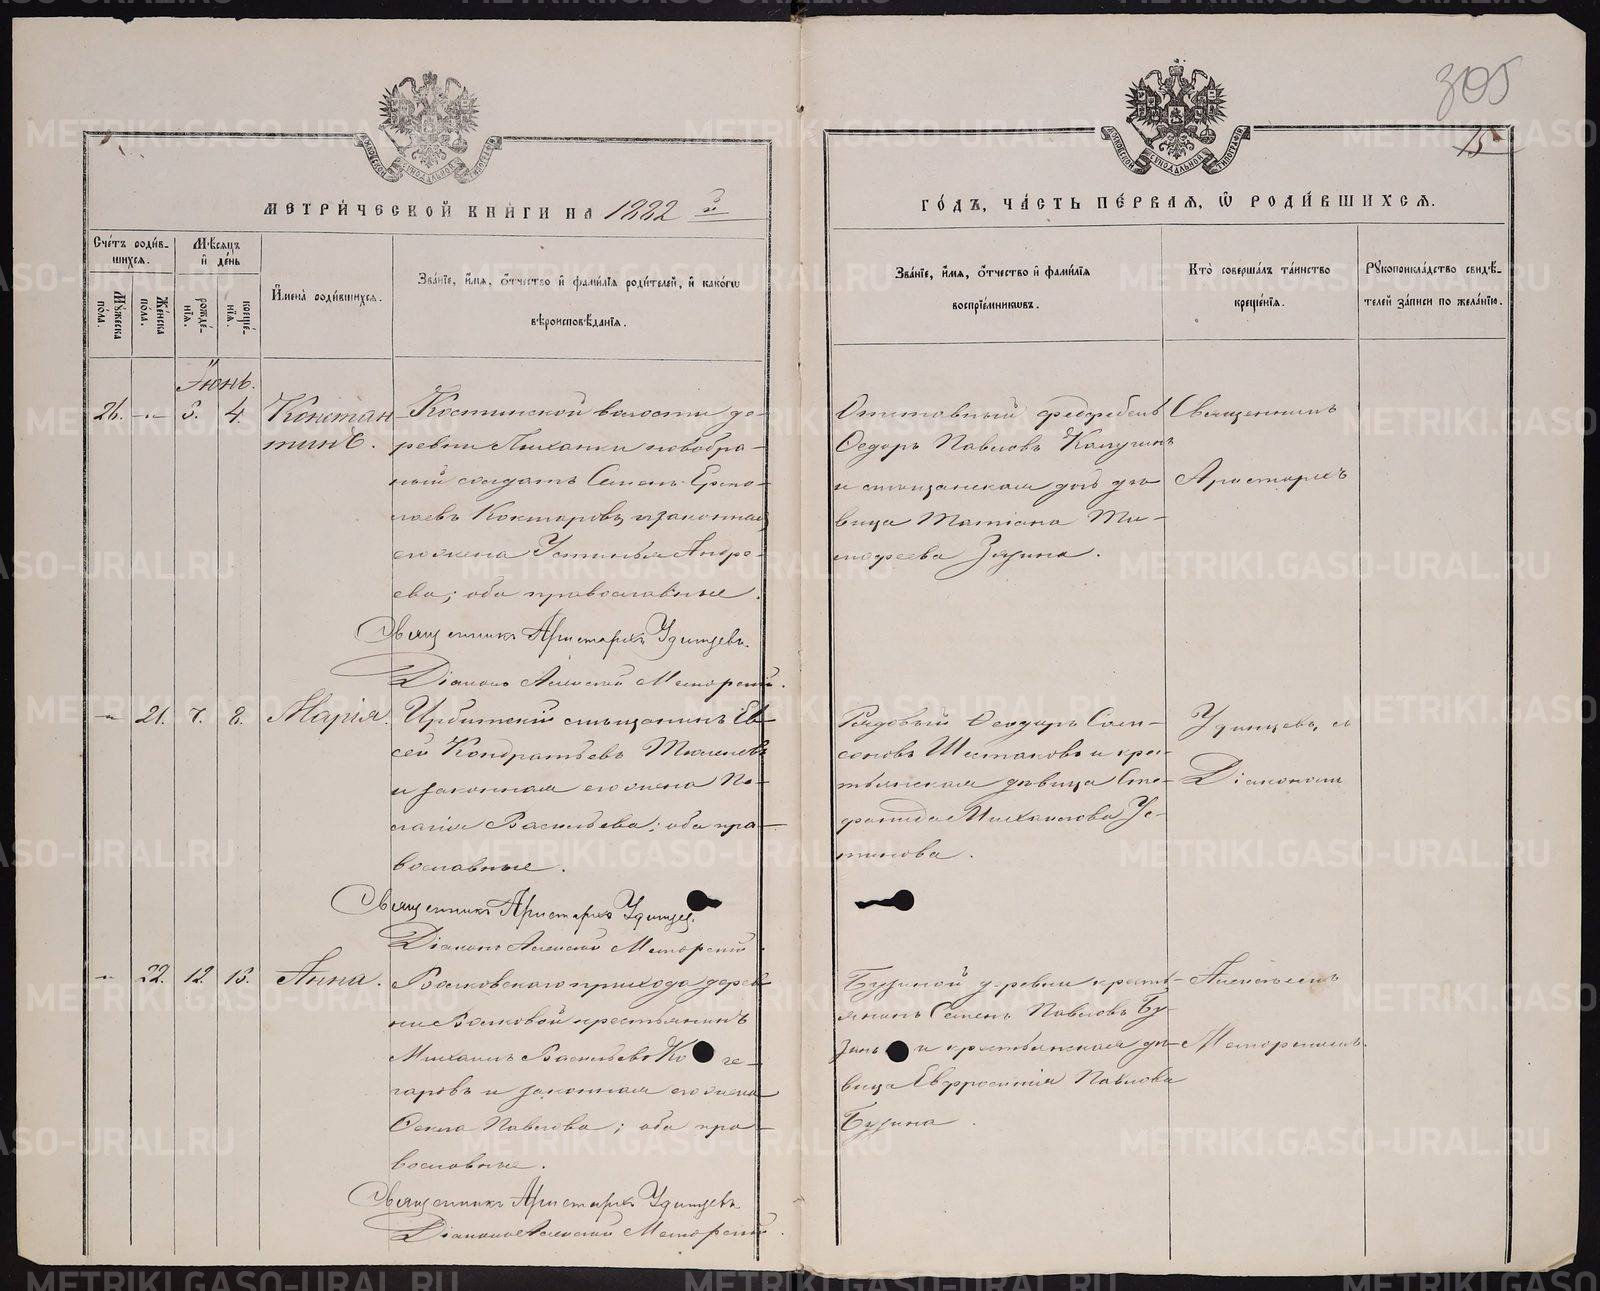 305
15
МЕТРИ́ЧЕСКОЙ КНИ́ГИ НА 1882 й
ГО́ДЪ, ЧА́СТЬ ПЕ́РВАЯ, Ѿ РОДИ́ВШИХСЯ.
Сче́тъ роди́в-
шихся.
Мꙋ́жеска по́ла.
Же́нска по́ла.
Мѣ́сяцъ
и҆ де́нь
рожде́-
нїя.
креще́-
нїя.
И҆мена̀ роди́вшихся.
Зва́нїе, и҆́мя, ѻ҆́тчество и҆ фами́лїя роди́телей, и҆ како́гѡ
вѣроисповѣ́данїя.
Зва́нїе, и҆́мя, ѻ҆́тчество и҆ фами́лїя
воспрїе́мникѡвъ.
Кто̀ соверша́лъ та́инство
креще́нїя.
Рꙋкоприкла́дство свидѣ́-
телей за́писи по жела́нїю.
Іюнь.
26. 3. 4. Констан
тинъ.
Костинской волости де-
ревни новобра-
ный солдатъ Семенъ Ермо-
лаевъ и законная
его жена Устинья Андре-
ева; оба православные.
Священникъ Аристархъ Удинцевъ.
Діаконъ Алексей
Отставный фельдфебель
Ѳедоръ Павловъ Калугинъ
и мѣщанская дочь дѣ-
вица Татіана Ти-
моѳеева Зязина.
Священникъ
Аристархъ
21. 7. 8. Марія.
Ирбитскій мѣщанинъ Ев-
сей Кондратьевъ
и законная его жена Пе-
лагія Васильева; оба пра-
вославные.
Священникъ Аристархъ Удинцев.
Діаконъ Алексей
Рядовый Ѳеодоръ Сам-
соновъ Шестаковъ и кре-
стьянская дѣвица Сте-
фанида Михаилова Ус-
тинова.
Удинцевъ, съ
Діакономъ
22. 12. 13. Анна.
Волковскаго прихода дерев-
ни Волковой крестьянинъ
Михаилъ Васильевъ
гаровъ и законная его жена
Павлова; оба пра-
вославные.
Священникъ Аристархъ Удинцевъ
Діаконъ Алексей
Бузиной деревни крест-
янинъ Семенъ Павловъ Бу-
зинъ и крестьянская дѣ-
вица Евфросинія Павлова
Бузина.
Алексѣемъ